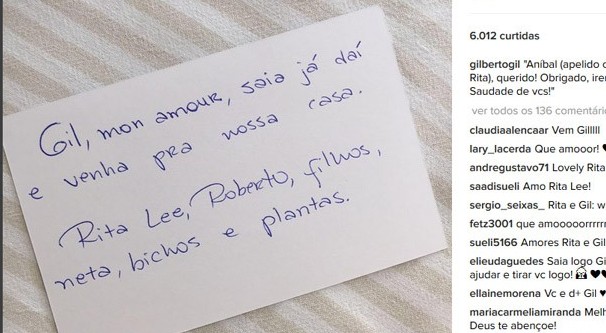 Gil, mon amour, saia já daí
e venha pra nossa casa.
Rita Lee, Roberto, filhos,
neta, bichos e plantas.
6.012 curtidas
gilbertogil "Aníbal (apelido
Rita), querido! Obrigado,
Saudade de vcs!"
ver todos os 136
claudiaalencaar Vem Gilllll
lary_lacerda Que amooor!
andregustavo71 Lovely Rita
saadisueli Amo Rita Lee!
sergio_seixas_ Rita e Gil:
fetz3001 que
sueli5166 Amores Rita e Gil
elieudaguedes Saia logo
ajudar e tirar vc logo! 🙆 ♥♥
ellainemorena Vc e d+ Gil ♥
mariacarmeliamiranda
Deus te abençoe!